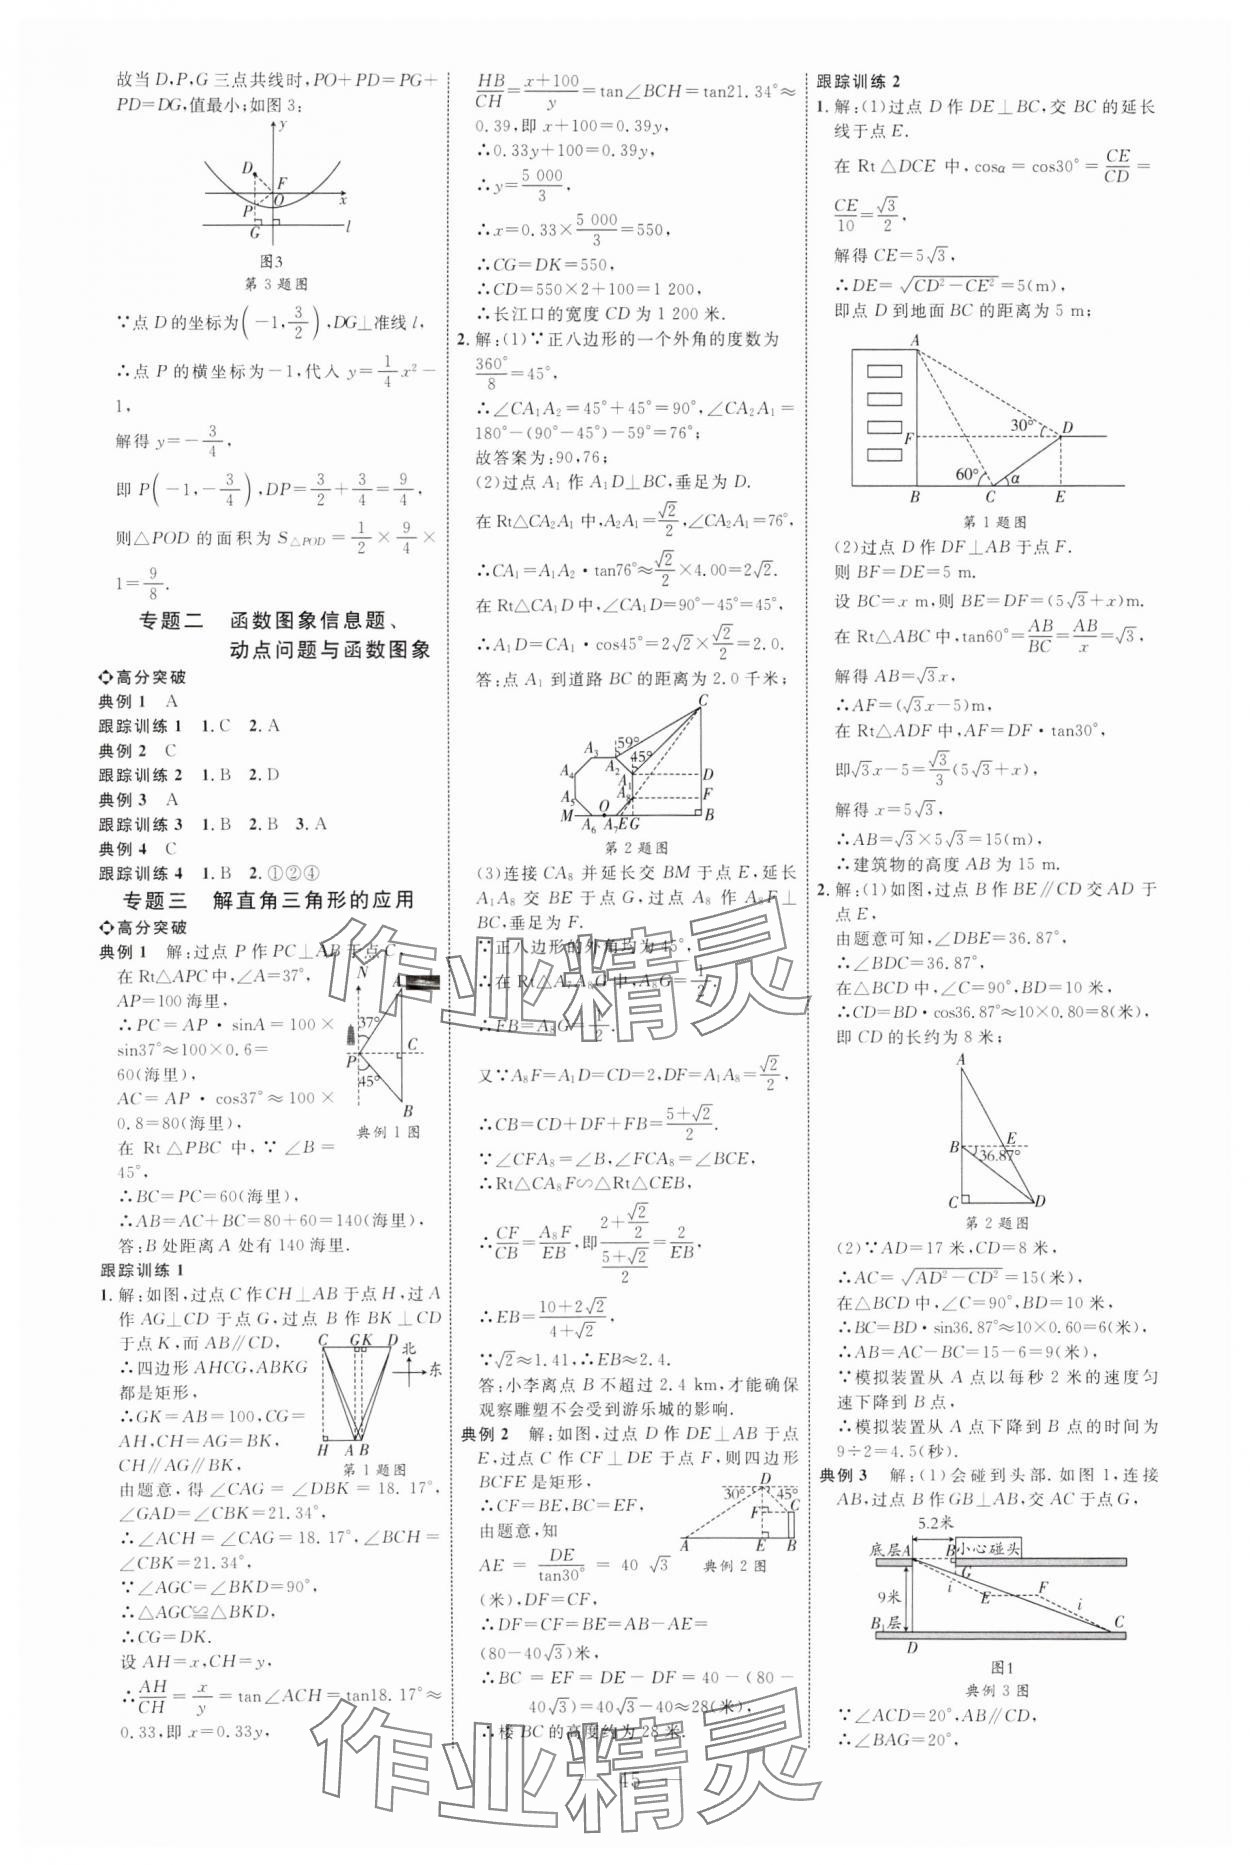 故当 D,P,G 三点共线时,PO+PD=PG+
PD=DG,值最小;如图 3;
y
D
F
O
x
P
G
l
图3
第 3 题图
∵点 D 的坐标为(-1,3/2),DG⊥准线 l,
∴点 P 的横坐标为-1,代入 y=1/4x²-
1,
解得 y=-3/4,
即 P(-1,-3/4),DP=3/2+3/4=9/4,
则△POD 的面积为 S△POD=1/2×9/4×
1=9/8.
专题二 函数图象信息题、
动点问题与函数图象
高分突破
典例 1 A
跟踪训练 1 1.C 2.A
典例 2 C
跟踪训练 2 1.B 2.D
典例 3 A
跟踪训练 3 1.B 2.B 3.A
典例 4 C
跟踪训练 4 1.B 2.①②④
专题三 解直角三角形的应用
高分突破
典例 1 解:过点 P 作 PC⊥AB 于点 C,
在 Rt△APC 中,∠A=37°,
AP=100 海里,
∴PC=AP·sinA=100×
sin37°≈100×0.6=
60(海里),
AC=AP·cos37°≈100×
0.8=80(海里),
在 Rt△PBC 中,∵∠B=
45°,
N
A
37°
C
P
45°
B
典例 1 图
∴BC=PC=60(海里),
∴AB=AC+BC=80+60=140(海里),
答:B 处距离 A 处有 140 海里.
跟踪训练 1
1.解:如图,过点 C 作 CH⊥AB 于点 H,过 A
作 AG⊥CD 于点 G,过点 B 作 BK⊥CD
于点 K,而 AB∥CD,
∴四边形 AHCG,ABKG
都是矩形,
∴GK=AB=100,CG=
AH,CH=AG=BK,
CH∥AG∥BK,
C GK D
北
东
H A B
第 1 题图
由题意,得∠CAG=∠DBK=18.17°,
∠GAD=∠CBK=21.34°,
∴∠ACH=∠CAG=18.17°,∠BCH=
∠CBK=21.34°,
∵∠AGC=∠BKD=90°,
∴△AGC≌△BKD,
∴CG=DK.
设 AH=x,CH=y,
∴AH/CH=x/y=tan∠ACH=tan18.17°≈
0.33,即 x=0.33y,
HB/CH=x+100/y=tan∠BCH=tan21.34°≈
0.39,即 x+100=0.39y,
∴0.33y+100=0.39y,
∴y=5 000/3,
∴x=0.33×5 000/3=550,
∴CG=DK=550,
∴CD=550×2+100=1 200,
∴长江口的宽度 CD 为 1 200 米.
2.解:(1)∵正八边形的一个外角的度数为
360°/8=45°,
∴∠CA₁A₂=45°+45°=90°,∠CA₂A₁=
180°-(90°-45°)-59°=76°;
故答案为:90,76;
(2)过点 A₁ 作 A₁D⊥BC,垂足为 D.
在 Rt△CA₂A₁ 中,A₁A₂=√2/2,∠CA₂A₁=76°,
∴CA₁=A₁A₂·tan76°≈√2/2×4.00=2√2.
在 Rt△CA₁D 中,∠CA₁D=90°-45°=45°,
∴A₁D=CA₁·cos45°=2√2×√2/2=2.0.
答:点 A₁ 到道路 BC 的距离为 2.0 千米;
C
A₃ 59°
45°
A₂
A₄
A₁
D
A₅
A₈
F
O
M
A₆ A₇ E G
B
第 2 题图
(3)连接 CA₈ 并延长交 BM 于点 E,延长
A₁A₈ 交 BE 于点 G,过点 A₈ 作 A₈F⊥
BC,垂足为 F.
∵正八边形的外角均为 45°,
∴在 Rt△A₇A₈G 中,A₈G=1/2.
∴FB=A₈G=1/2.
又∵A₈F=A₁D=CD=2,DF=A₁A₈=√2/2,
∴CB=CD+DF+FB=5+√2/2.
∵∠CFA₈=∠B,∠FCA₈=∠BCE,
∴Rt△CA₈F∽△Rt△CEB,
∴CF/CB=A₈F/EB,即(2+√2/2)/((5+√2)/2)=2/EB,
∴EB=10+2√2/4+√2,
∵√2≈1.41,∴EB≈2.4.
答:小李离点 B 不超过 2.4 km,才能确保
观察雕塑不会受到游乐城的影响.
典例 2 解:如图,过点 D 作 DE⊥AB 于点
E,过点 C 作 CF⊥DE 于点 F,则四边形
BCFE 是矩形,
∴CF=BE,BC=EF,
由题意,知
AE=DE/tan30°=40√3
(米),DF=CF,
D
30° 45°
C
F
A
E B
典例 2 图
∴DF=CF=BE=AB-AE=
(80-40√3)米,
∴BC=EF=DE-DF=40-(80-
40√3)=40√3-40≈28(米),
∴楼 BC 的高度约为 28 米.
跟踪训练 2
1.解:(1)过点 D 作 DE⊥BC,交 BC 的延长
线于点 E.
在 Rt△DCE 中,cosα=cos30°=CE/CD=
CE/10=√3/2,
解得 CE=5√3,
∴DE=√CD²-CE²=5(m),
即点 D 到地面 BC 的距离为 5 m;
A
30° D
F
60° α
B C E
第 1 题图
(2)过点 D 作 DF⊥AB 于点 F.
则 BF=DE=5 m.
设 BC=x m,则 BE=DF=(5√3+x)m.
在 Rt△ABC 中,tan60°=AB/BC=AB/x=√3,
解得 AB=√3x,
∴AF=(√3x-5)m,
在 Rt△ADF 中,AF=DF·tan30°,
即√3x-5=√3/3(5√3+x),
解得 x=5√3,
∴AB=√3×5√3=15(m),
∴建筑物的高度 AB 为 15 m.
2.解:(1)如图,过点 B 作 BE∥CD 交 AD 于
点 E,
由题意可知,∠DBE=36.87°,
∴∠BDC=36.87°,
在△BCD 中,∠C=90°,BD=10 米,
∴CD=BD·cos36.87°≈10×0.80=8(米),
即 CD 的长约为 8 米;
A
B
E
36.87°
C
D
第 2 题图
(2)∵AD=17 米,CD=8 米,
∴AC=√AD²-CD²=15(米),
在△BCD 中,∠C=90°,BD=10 米,
∴BC=BD·sin36.87°≈10×0.60=6(米),
∴AB=AC-BC=15-6=9(米),
∵模拟装置从 A 点以每秒 2 米的速度匀
速下降到 B 点,
∴模拟装置从 A 点下降到 B 点的时间为
9÷2=4.5(秒).
典例 3 解:(1)会碰到头部.如图 1,连接
AB,过点 B 作 GB⊥AB,交 AC 于点 G,
5.2米
底层A B 小心碰头
G
i
E F
9米
i
B₁层
C
D
图1
典例 3 图
∵∠ACD=20°,AB∥CD,
∴∠BAG=20°,
45
作业精灵
作业精灵